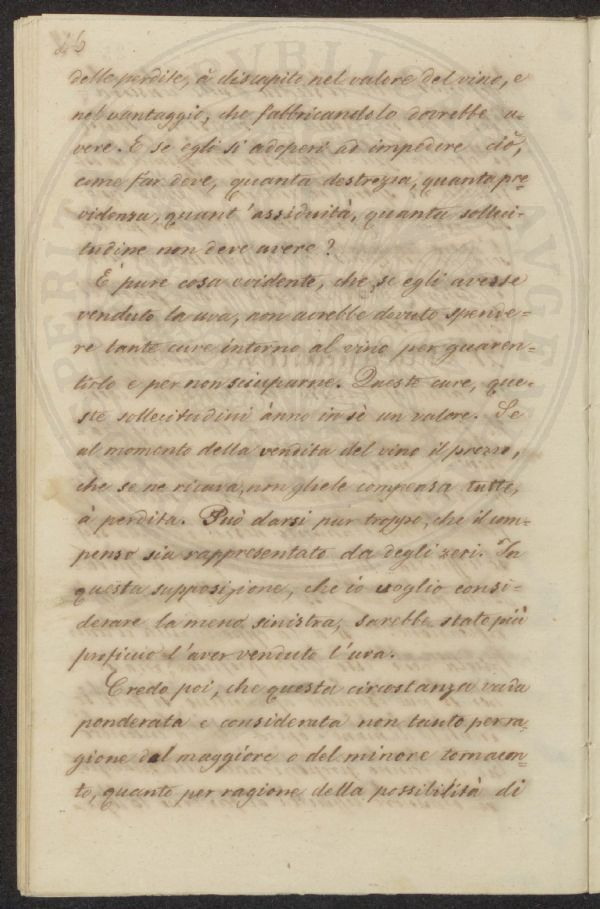 26
delle perdite, à discapito nel valore del vino, e
nel vantaggio, che fabbricandolo dovrebbe a-
vere. E se egli si adoperi ad impedire ciò,
come far deve, quanta destrezza, quanta pre-
videnza, quant'assiduità, quanta solleci-
tudine non deve avere?
È pure cosa evidente, che se egli avesse
venduto la uva, non avrebbe dovuto spende-
re tante cure intorno al vino per guaren-
tirlo e per non sciuparne. Queste cure, que-
ste sollecitudini ànno in sè un valore. Se
al momento della vendita del vino il prezzo,
che se ne ricava, non gliele compensa tutte,
à perdita. Può darsi pur troppo, che il com-
penso sia rappresentato da degli zeri. In
questa supposizione, che io voglio consi-
derare la meno sinistra, sarebbe stato più
proficuo l'aver venduto l'uva.
Credo poi, che questa circostanza vada
ponderata e considerata non tanto per ra-
gione del maggiore o del minore tornacon-
to, quanto per ragione della possibilità di